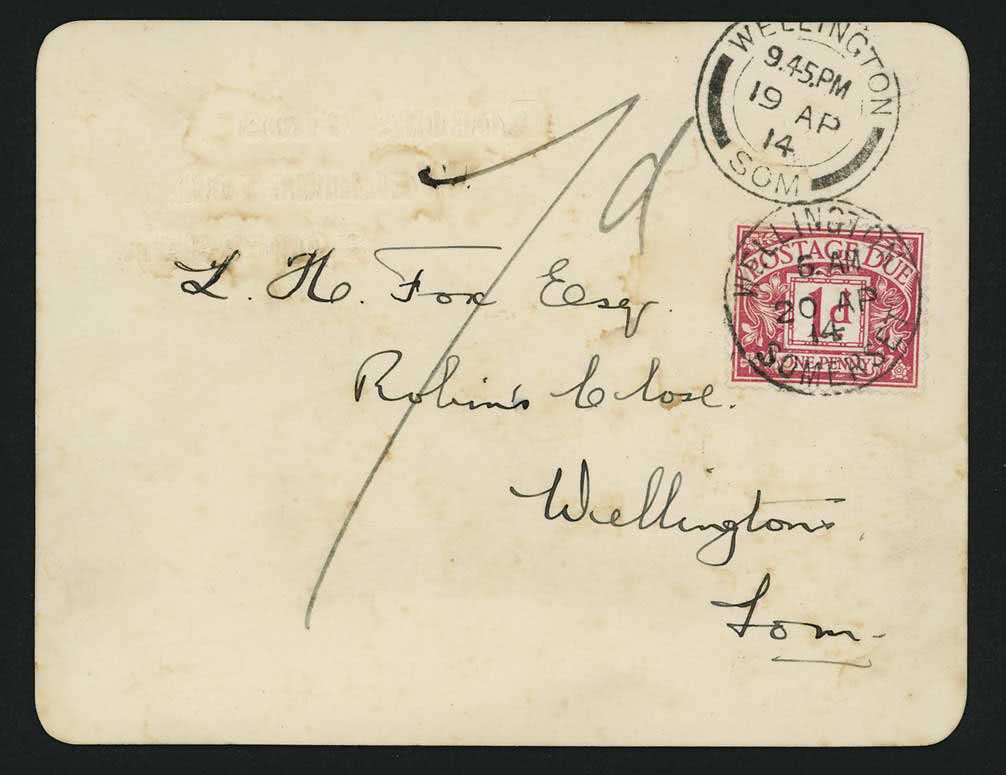 WELLINGTON
9.45.PM
19 AP
14
SOM
1d
WELLINGTON
6. AM
20 AP
14
SOMERSET
POSTAGE DUE
1d
ONE PENNY
L. H. Fox Esq.
Robin's Close.
Wellington,
Som-